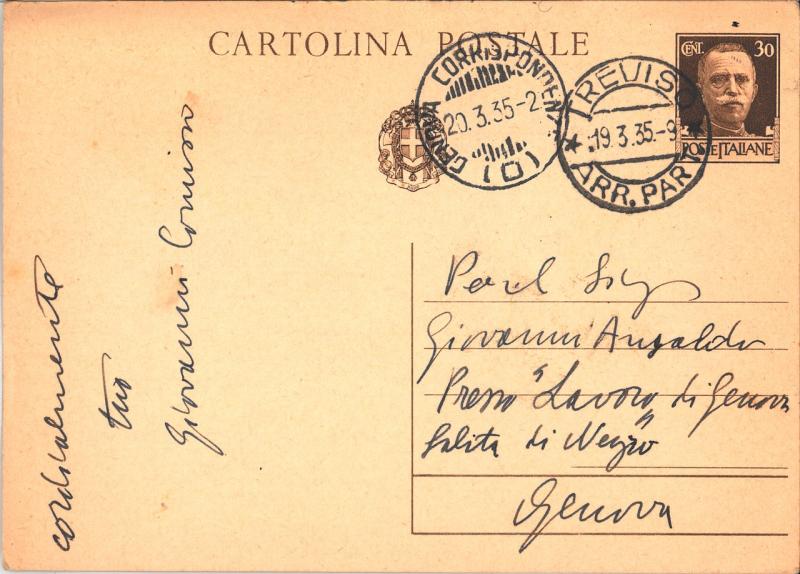 CARTOLINA POSTALE
CENT. 30
POSTE ITALIANE
GENOVA CORRISPONDENZE
20.3.35-2
(D)
TREVISO
19.3.35.-9
ARR. PART.
Giovanni Ansaldo
Presso "Lavoro" di Genova
Salita di Negro
Genova
cordialmente
tuo
Giovanni Comisso